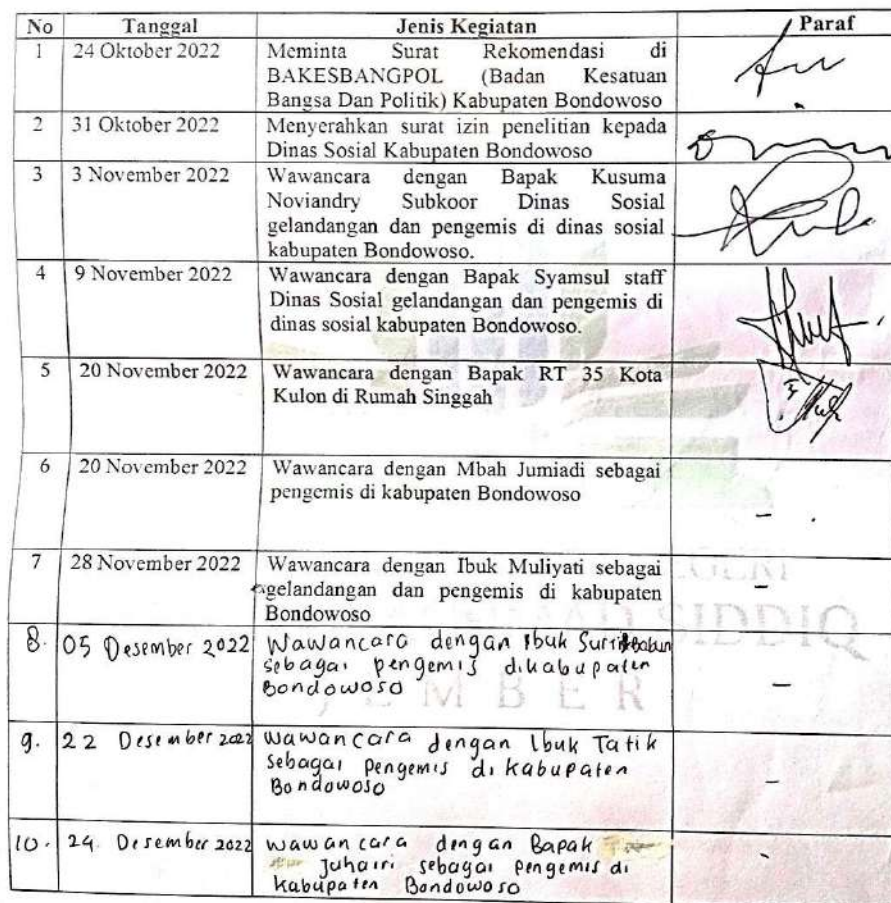 No Tanggal Jenis Kegiatan Paraf
1 24 Oktober 2022 Meminta Surat Rekomendasi di
BAKESBANGPOL (Badan Kesatuan
Bangsa Dan Politik) Kabupaten Bondowoso
2 31 Oktober 2022 Menyerahkan surat izin penelitian kepada
Dinas Sosial Kabupaten Bondowoso
3 3 November 2022 Wawancara dengan Bapak Kusuma
Noviandry Subkoor Dinas Sosial
gelandangan dan pengemis di dinas sosial
kabupaten Bondowoso.
4 9 November 2022 Wawancara dengan Bapak Syamsul staff
Dinas Sosial gelandangan dan pengemis di
dinas sosial kabupaten Bondowoso.
5 20 November 2022 Wawancara dengan Bapak RT 35 Kota
Kulon di Rumah Singgah
6 20 November 2022 Wawancara dengan Mbah Jumiadi sebagai
pengemis di kabupaten Bondowoso
-
7 28 November 2022 Wawancara dengan Ibuk Muliyati sebagai
gelandangan dan pengemis di kabupaten -
Bondowoso
8. 05 Desember 2022 Wawancara dengan Ibuk
sebagai pengemis dikabupaten
Bondowoso -
9. 22 Desember 2022 Wawancara dengan Ibuk Tatik
sebagai pengemis di Kabupaten
Bondowoso -
10. 24 Desember 2022 Wawancara dengan Bapak
Juhairi sebagai pengemis di
Kabupaten Bondowoso
SIDDIQ
JEMBER